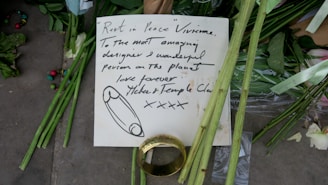 "Rest in Peace" Vivienne.
To the most amazing
designer & wonderful
person on the planet
love forever
& Temple
xxxx